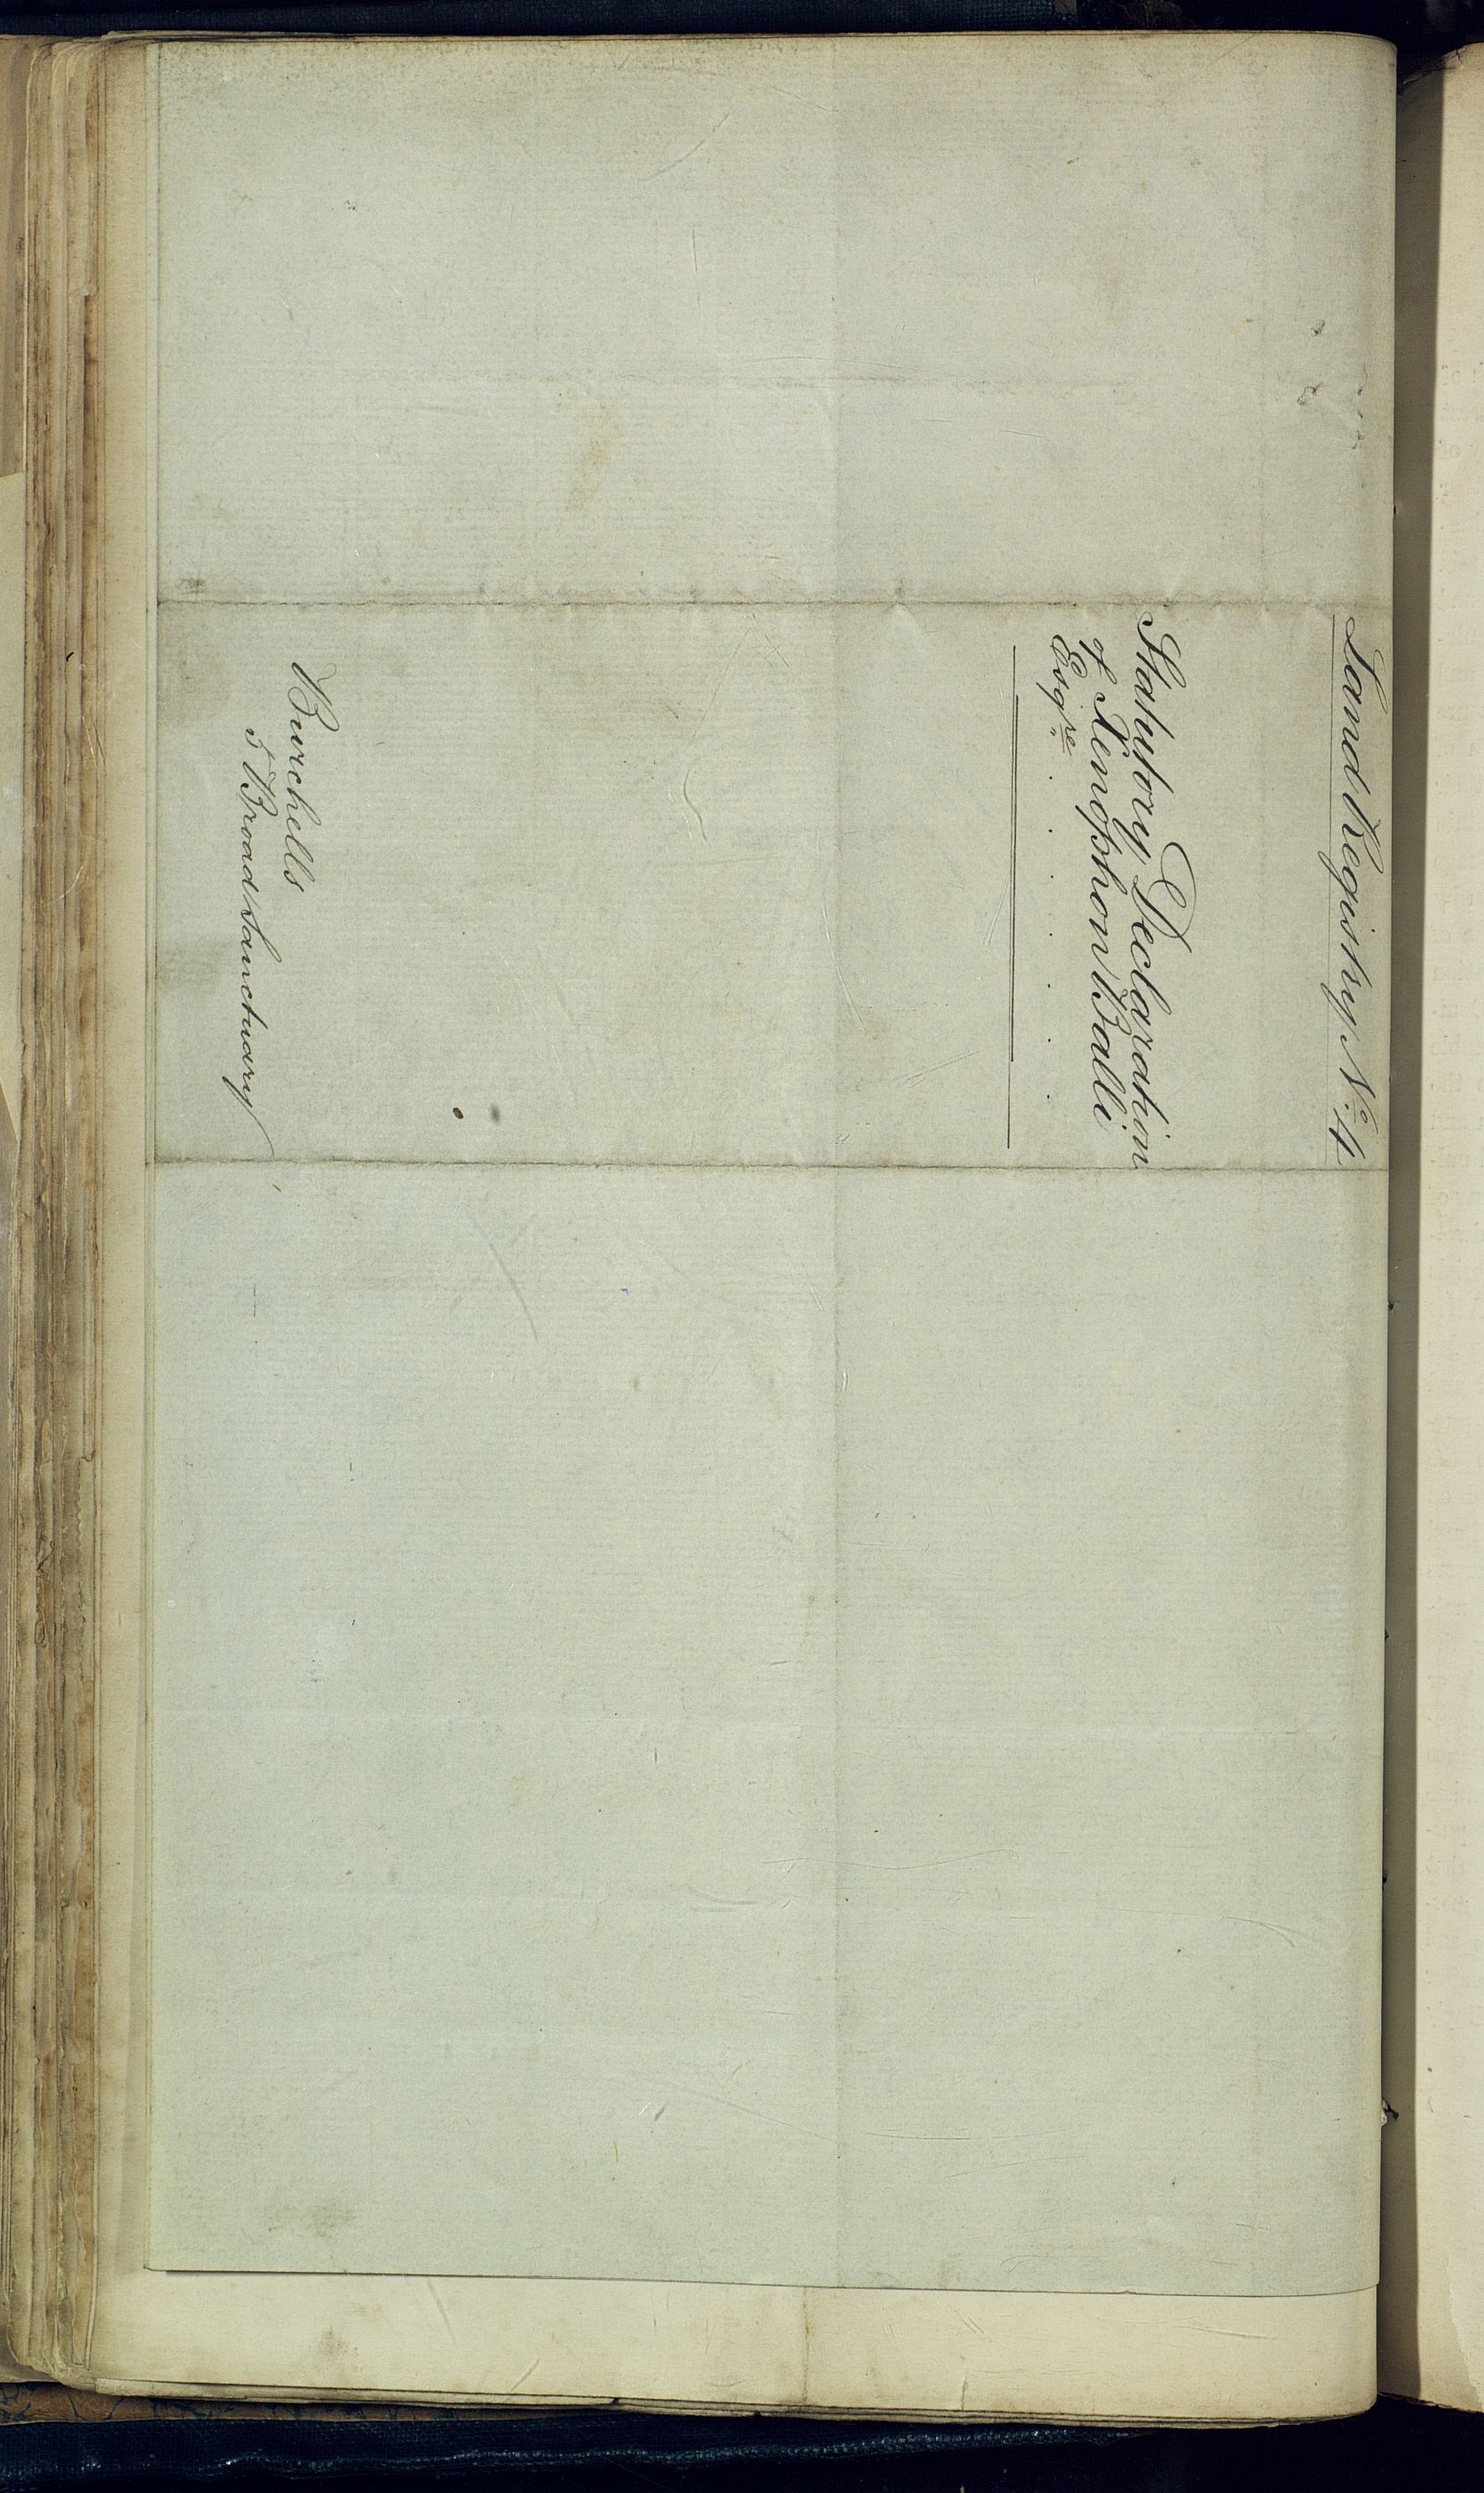 Land Registry No. 4
Statutory Declaration
of Xenophon Balli
Esqre.
Burchells
5 Broad Sanctuary